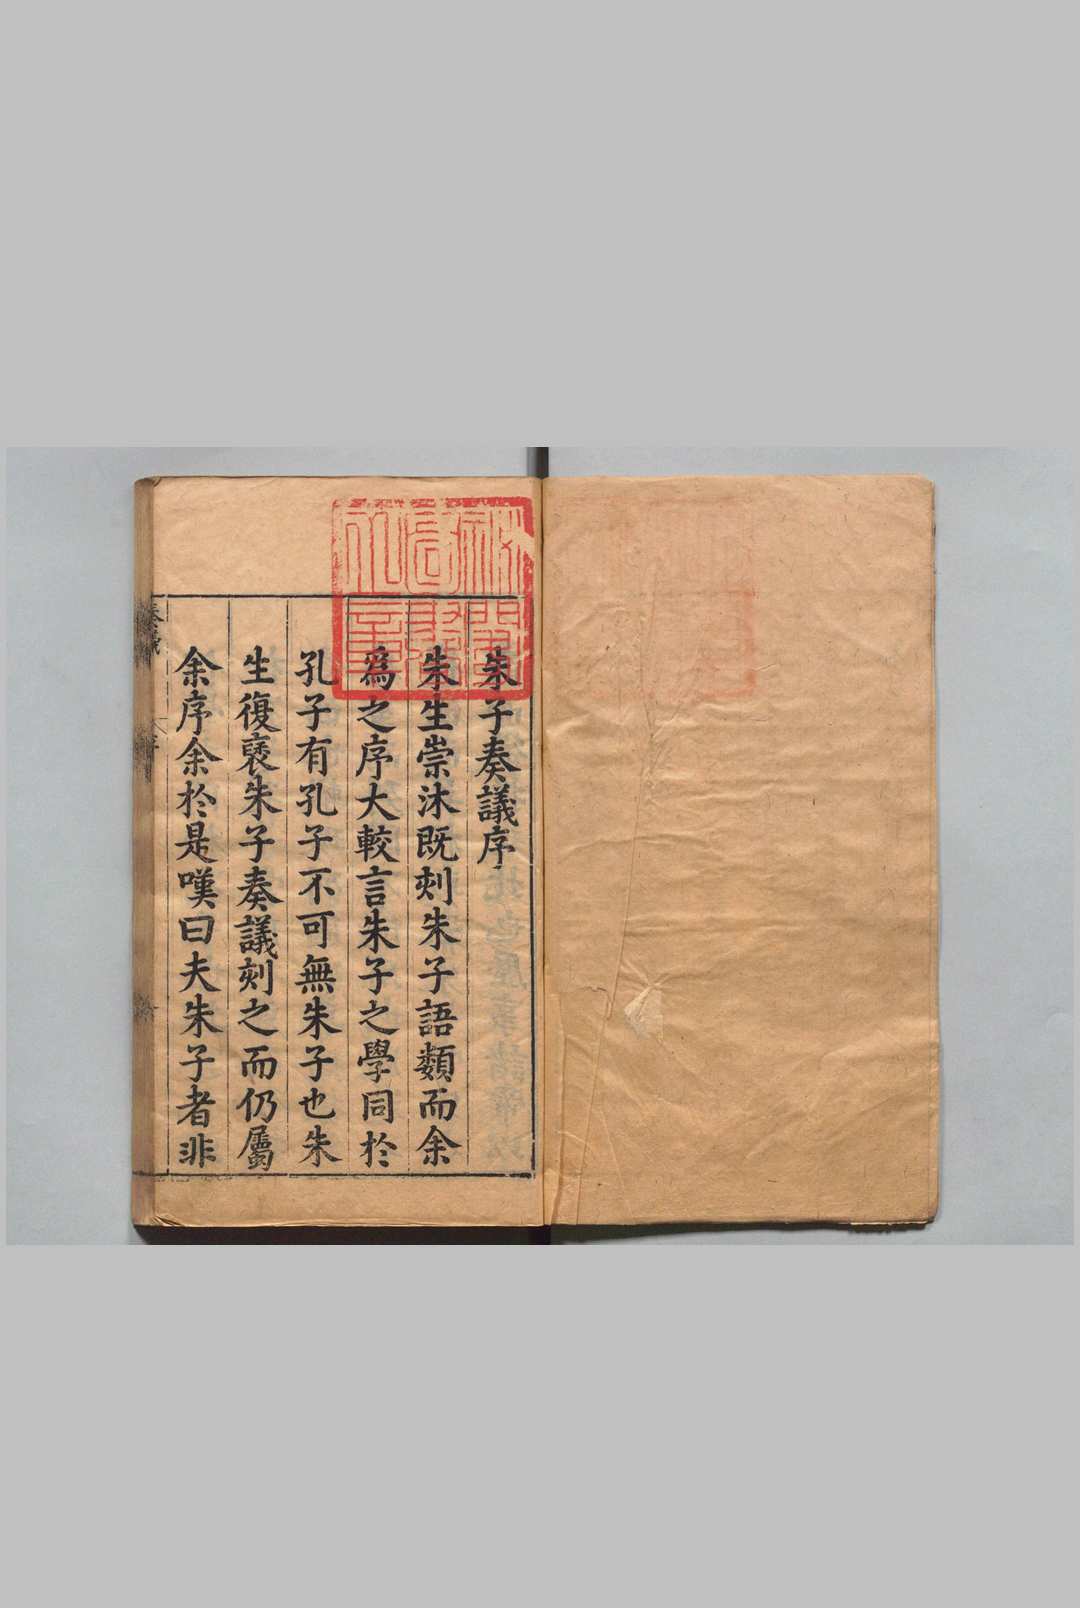 朱子奏議序
朱生崇沐既刻朱子語類而余
爲之序大較言朱子之學同於
孔子有孔子不可無朱子也朱
生復裒朱子奏議刻之而仍屬
余序余於是嘆曰夫朱子者非